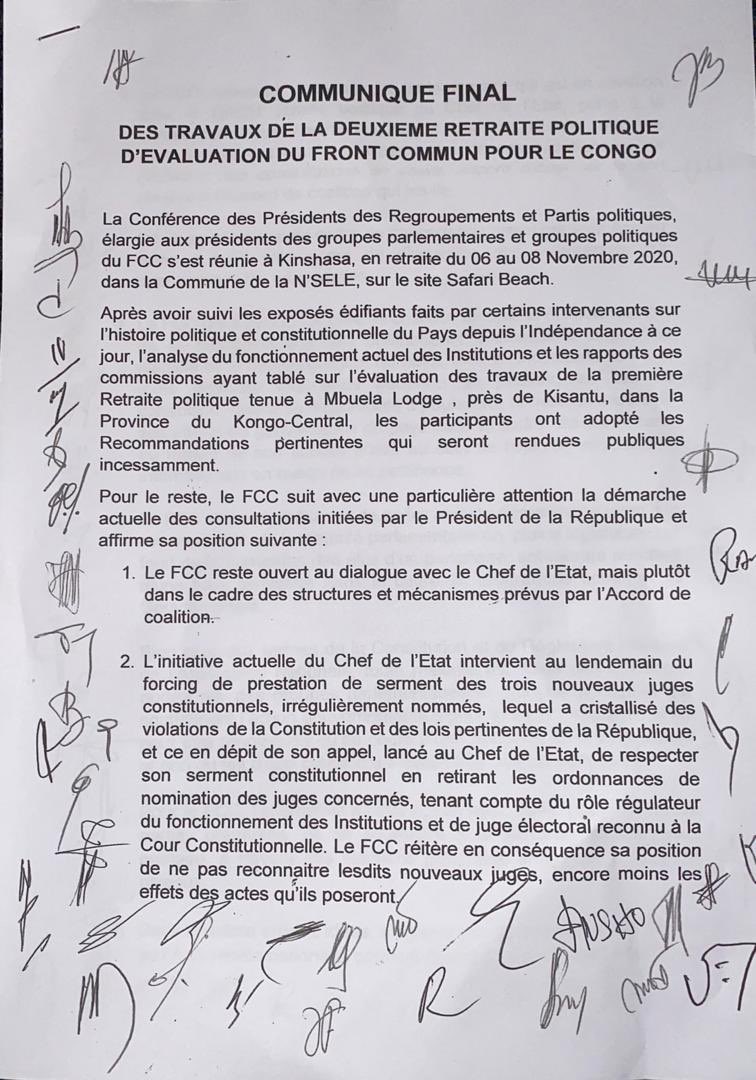 COMMUNIQUE FINAL
DES TRAVAUX DE LA DEUXIEME RETRAITE POLITIQUE
D'EVALUATION DU FRONT COMMUN POUR LE CONGO
La Conférence des Présidents des Regroupements et Partis politiques,
élargie aux présidents des groupes parlementaires et groupes politiques
du FCC s'est réunie à Kinshasa, en retraite du 06 au 08 Novembre 2020,
dans la Commune de la N'SELE, sur le site Safari Beach.
Après avoir suivi les exposés édifiants faits par certains intervenants sur
l'histoire politique et constitutionnelle du Pays depuis l'Indépendance à ce
jour, l'analyse du fonctionnement actuel des Institutions et les rapports des
commissions ayant tablé sur l'évaluation des travaux de la première
Retraite politique tenue à Mbuela Lodge , près de Kisantu, dans la
Province du Kongo-Central, les participants ont adopté les
Recommandations pertinentes qui seront rendues publiques
incessamment.
Pour le reste, le FCC suit avec une particulière attention la démarche
actuelle des consultations initiées par le Président de la République et
affirme sa position suivante :
1. Le FCC reste ouvert au dialogue avec le Chef de l'Etat, mais plutôt
dans le cadre des structures et mécanismes prévus par l'Accord de
coalition.
2. L'initiative actuelle du Chef de l'Etat intervient au lendemain du
forcing de prestation de serment des trois nouveaux juges
constitutionnels, irrégulièrement nommés, lequel a cristallisé des
violations de la Constitution et des lois pertinentes de la République,
et ce en dépit de son appel, lancé au Chef de l'Etat, de respecter
son serment constitutionnel en retirant les ordonnances de
nomination des juges concernés, tenant compte du rôle régulateur
du fonctionnement des Institutions et de juge électoral reconnu à la
Cour Constitutionnelle. Le FCC réitère en conséquence sa position
de ne pas reconnaitre lesdits nouveaux juges, encore moins les
effets des actes qu'ils poseront.